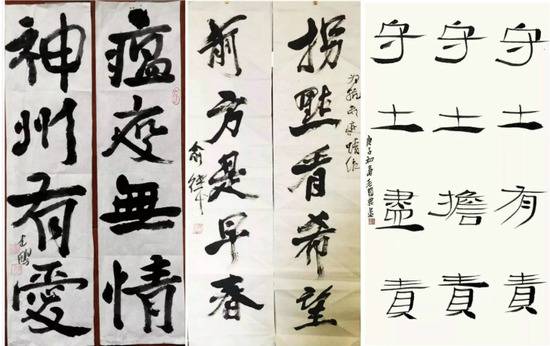 瘟疫無情
神州有愛
拐點看希望
前方是早春
守土有責
守土擔責
守土盡責
庚子初春